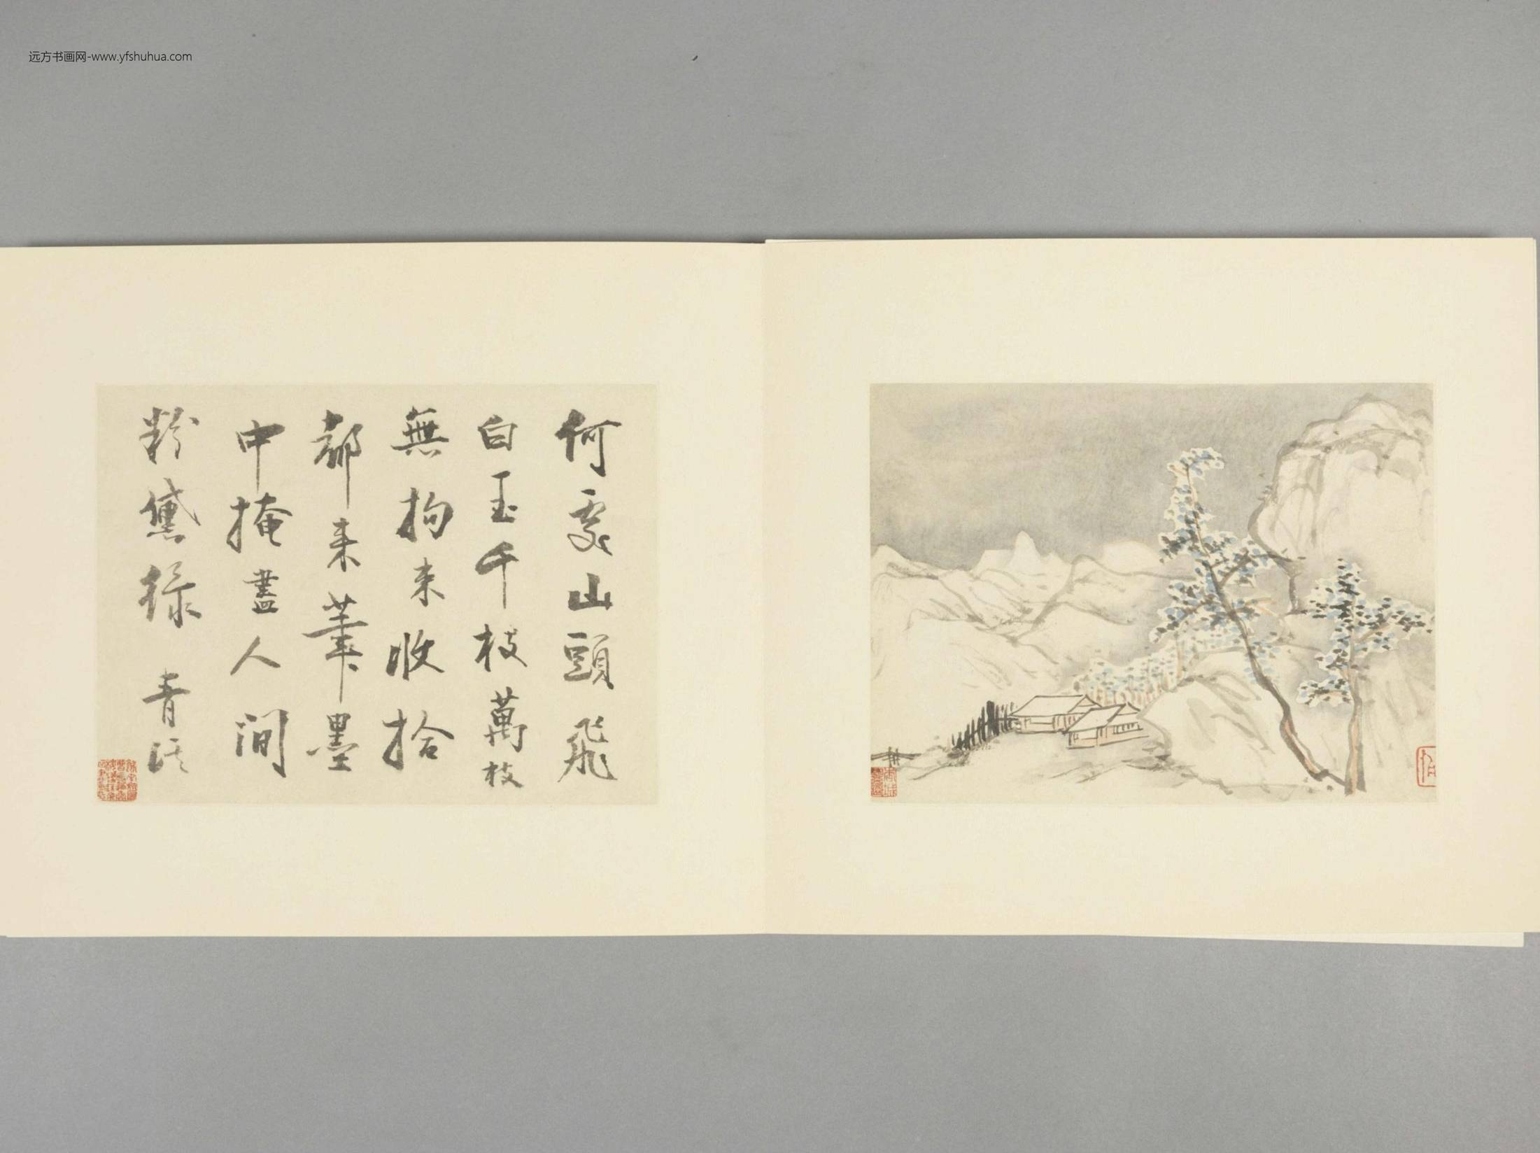 远方书画网-www.yfshuhua.com
何處山頭飛
白玉千枝萬枝
無拘束收拾
都來筆墨
中掩盡人間
粉黛綠 青溪